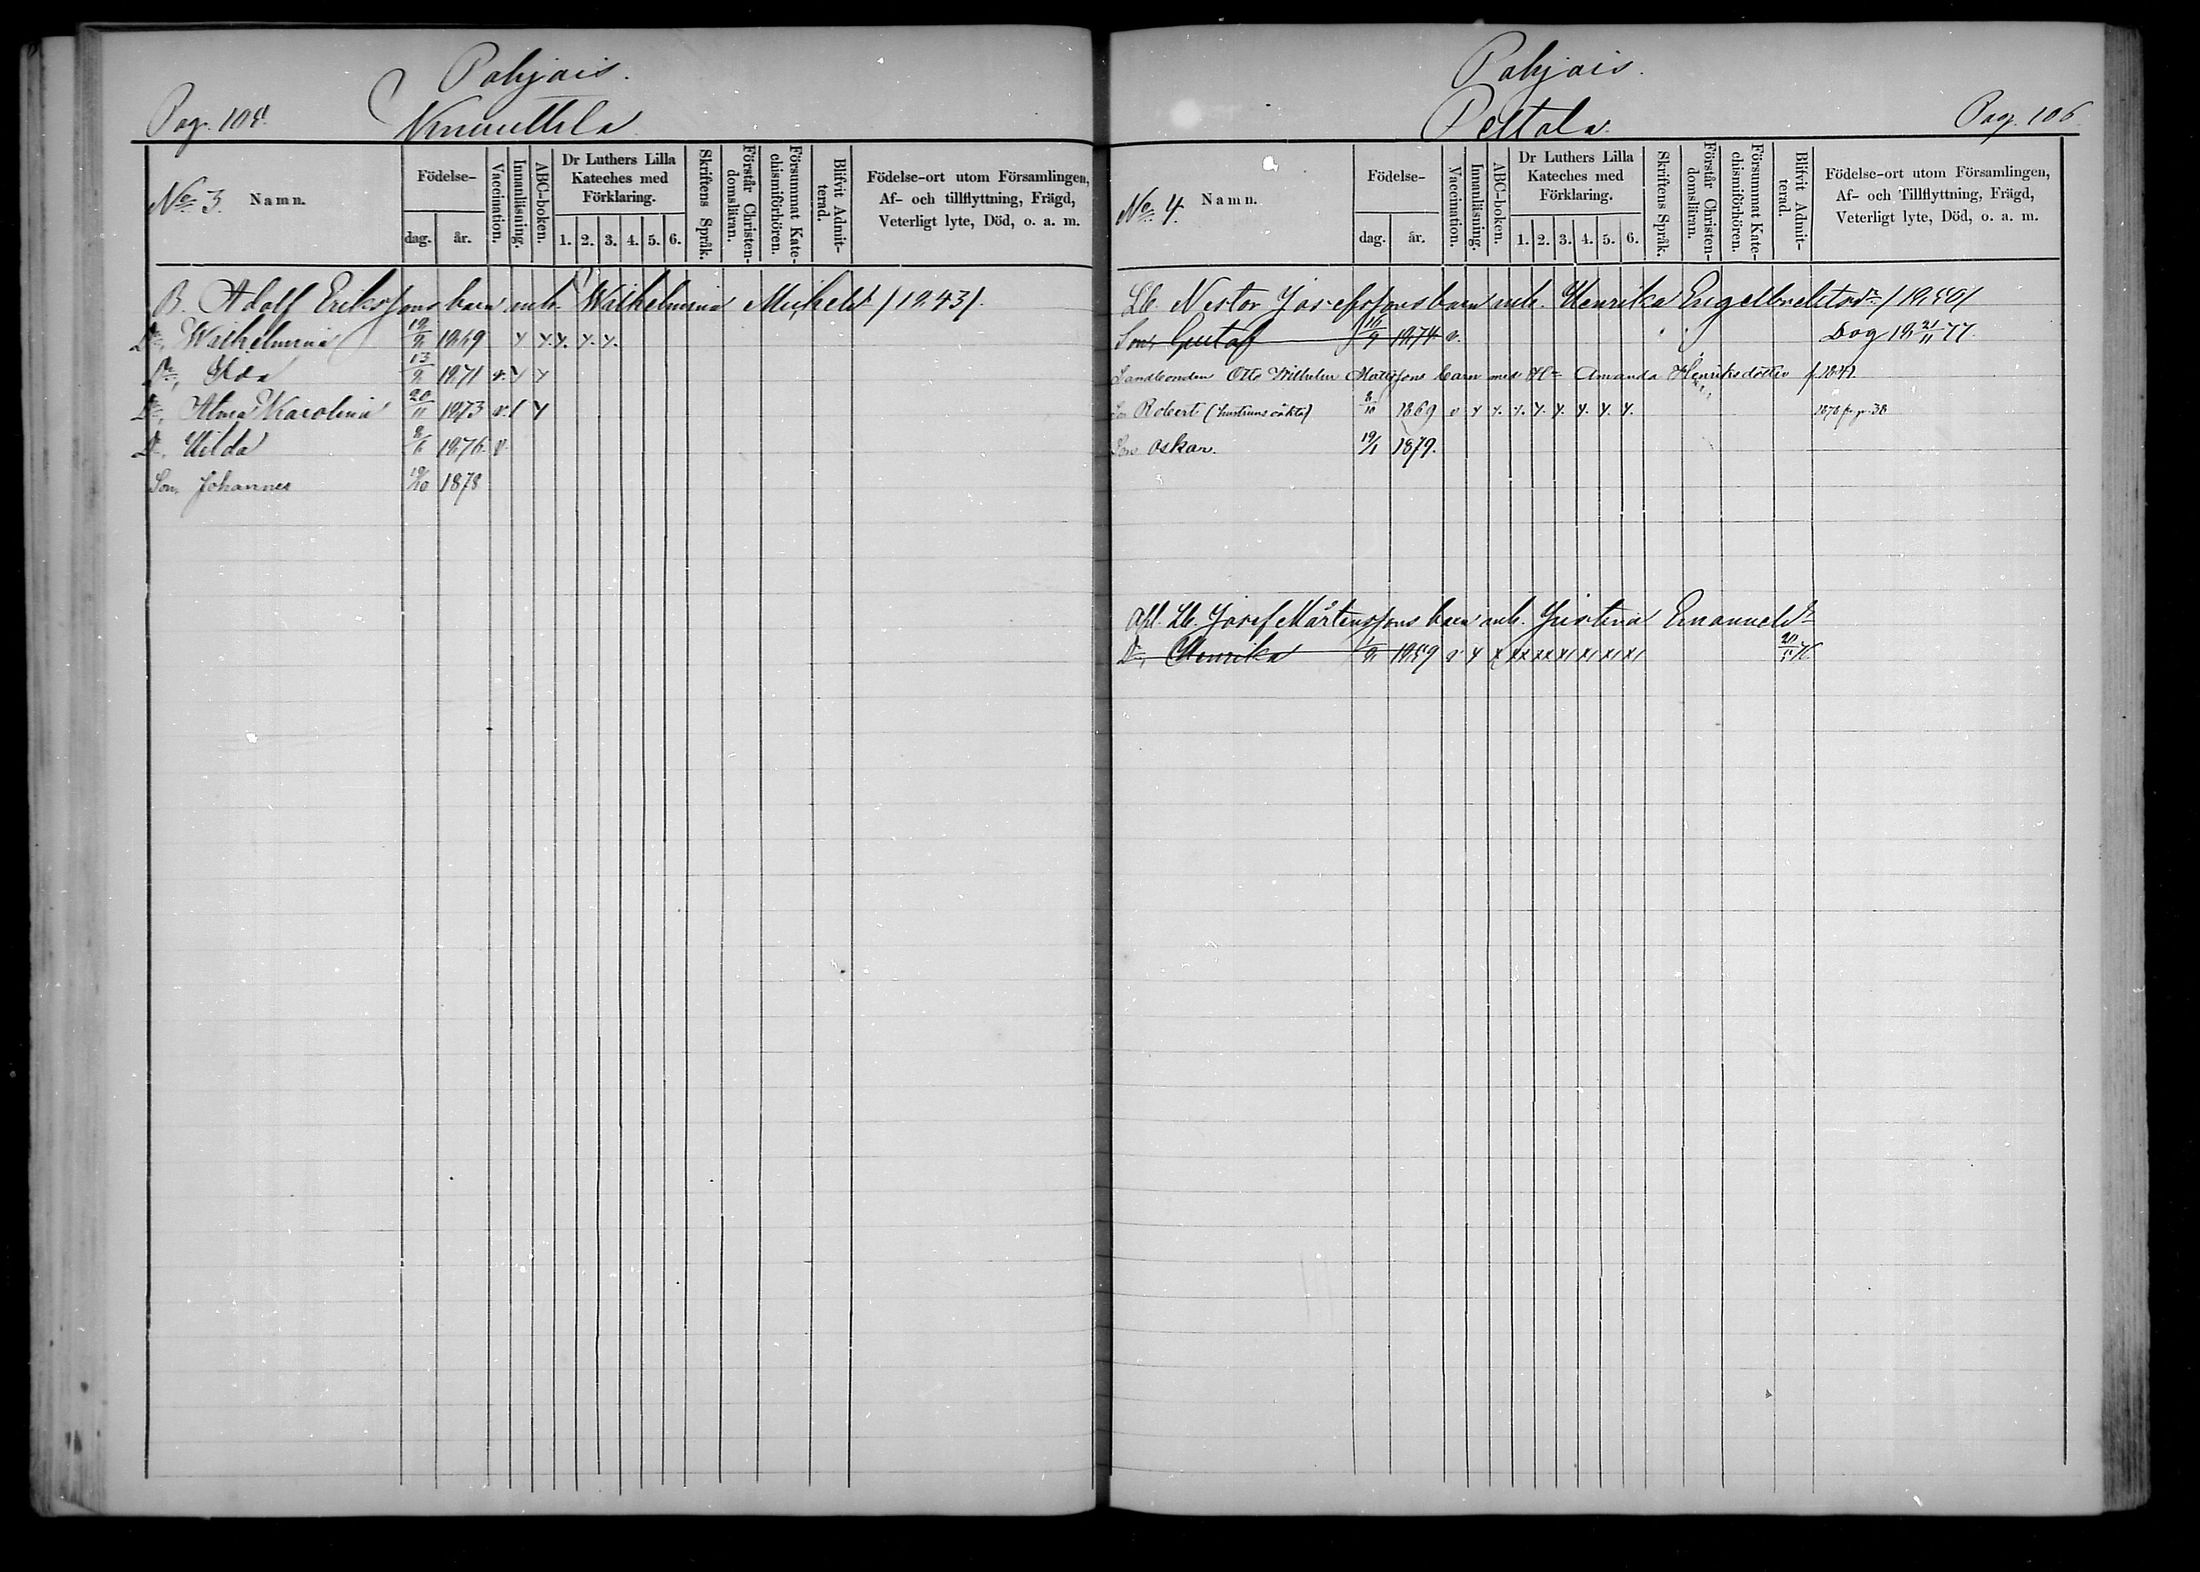 Pohjais.
Pag. 105.
Knuuttila
No 3. Namn.
Födelse-
dag. år.
Vaccination.
Innanläsning.
ABC-boken.
Dr Luthers Lilla Kateches med Förklaring.
1. 2. 3. 4. 5. 6.
Skriftens Språk.
Förstår Christen-domsläran.
Försummat Kate-chismiförhören.
Blifvit Admit-terad.
Födelse-ort utom Församlingen,
Af- och tillflyttning, Frägd,
Veterligt lyte, Död, o. a. m.
B. Adolf Erikssons barn mh. Wilhelmina Michelsdr /1843/.
Dr, Wilhelmina 19/2 1869 y y. y. y. y.
Dr, Ida 13/2 1871 v. y y
Dr, Alma Karolina 20/11 1873 v. / y
Dr, Hilda 8/6 1876 v.
Son, Johannes 18/10 1878
Pohjais.
Peltola.
Pag. 106
No 4. Namn.
Födelse-
dag. år.
Vaccination.
Innanläsning.
ABC-boken.
Dr Luthers Lilla Kateches med Förklaring.
1. 2. 3. 4. 5. 6.
Skriftens Språk.
Förstår Christen-domsläran.
Försummat Kate-chismiförhören.
Blifvit Admit-terad.
Födelse-ort utom Församlingen,
Af- och Tillflyttning, Frägd,
Veterligt lyte, Död, o. a. m.
Lb. Nestor Josefssons barn mh. Henrika Engelbrektsdr /1850/
Son, Gustaf 16/9 1874 v. Dog 18 21/11 77.
Landbonden Otto Wilhelm Mattssons barn med H Amanda Henriksdotter f. 1842
Son Robert (hustruns oäkta) 8/10 1869 v y y. y. y. y. y. y. y. 1878 fr. p. 38
Son Oskar 19/1 1879.
Afl. Lb. Josef Mårtenssons barn mh. Kristina Emanuelsdr
Dr, Henrika 1/2 1859 v y x xx xx x/ x/ x/ x/ 20/5 76